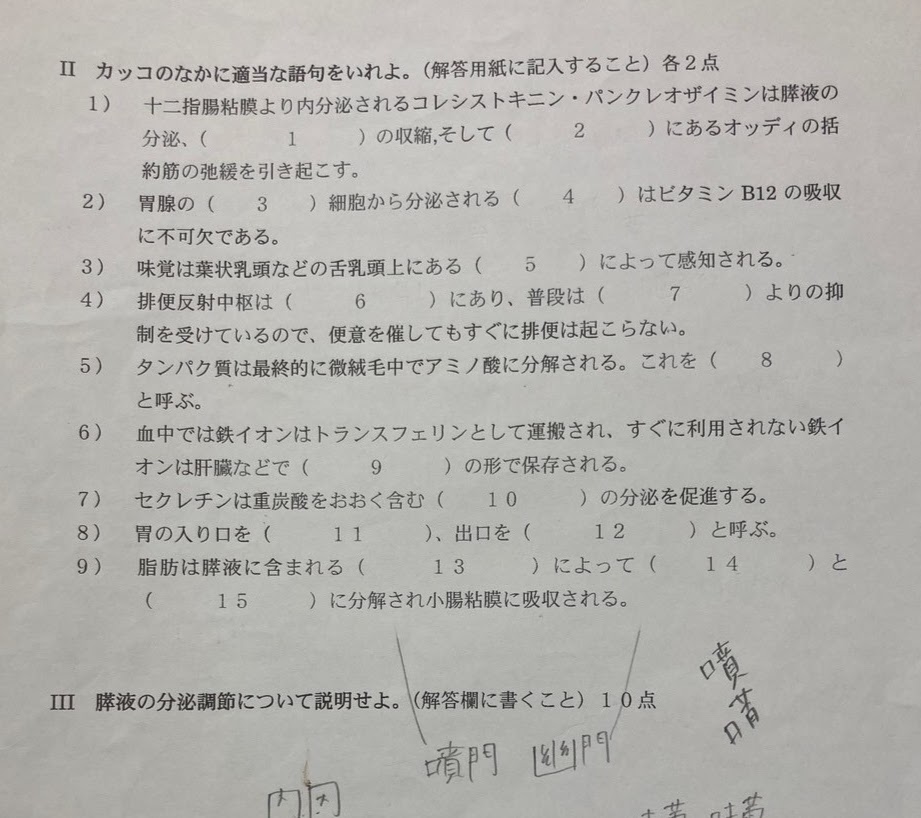 II カッコのなかに適当な語句をいれよ。（解答用紙に記入すること）各２点
１） 十二指腸粘膜より内分泌されるコレシストキニン・パンクレオザイミンは膵液の
分泌、（ １ ）の収縮,そして（ ２ ）にあるオッディの括
約筋の弛緩を引き起こす。
２） 胃腺の（ ３ ）細胞から分泌される（ ４ ）はビタミン B12 の吸収
に不可欠である。
３） 味覚は葉状乳頭などの舌乳頭上にある（ ５ ）によって感知される。
４） 排便反射中枢は（ ６ ）にあり、普段は（ ７ ）よりの抑
制を受けているので、便意を催してもすぐに排便は起こらない。
５） タンパク質は最終的に微絨毛中でアミノ酸に分解される。これを（ ８ ）
と呼ぶ。
６） 血中では鉄イオンはトランスフェリンとして運搬され、すぐに利用されない鉄イ
オンは肝臓などで（ ９ ）の形で保存される。
７） セクレチンは重炭酸をおおく含む（ １０ ）の分泌を促進する。
８） 胃の入り口を（ １１ ）、出口を（ １２ ）と呼ぶ。
９） 脂肪は膵液に含まれる（ １３ ）によって（ １４ ）と
（ １５ ）に分解され小腸粘膜に吸収される。
噴
III 膵液の分泌調節について説明せよ。（解答欄に書くこと）１０点
噴門 幽門